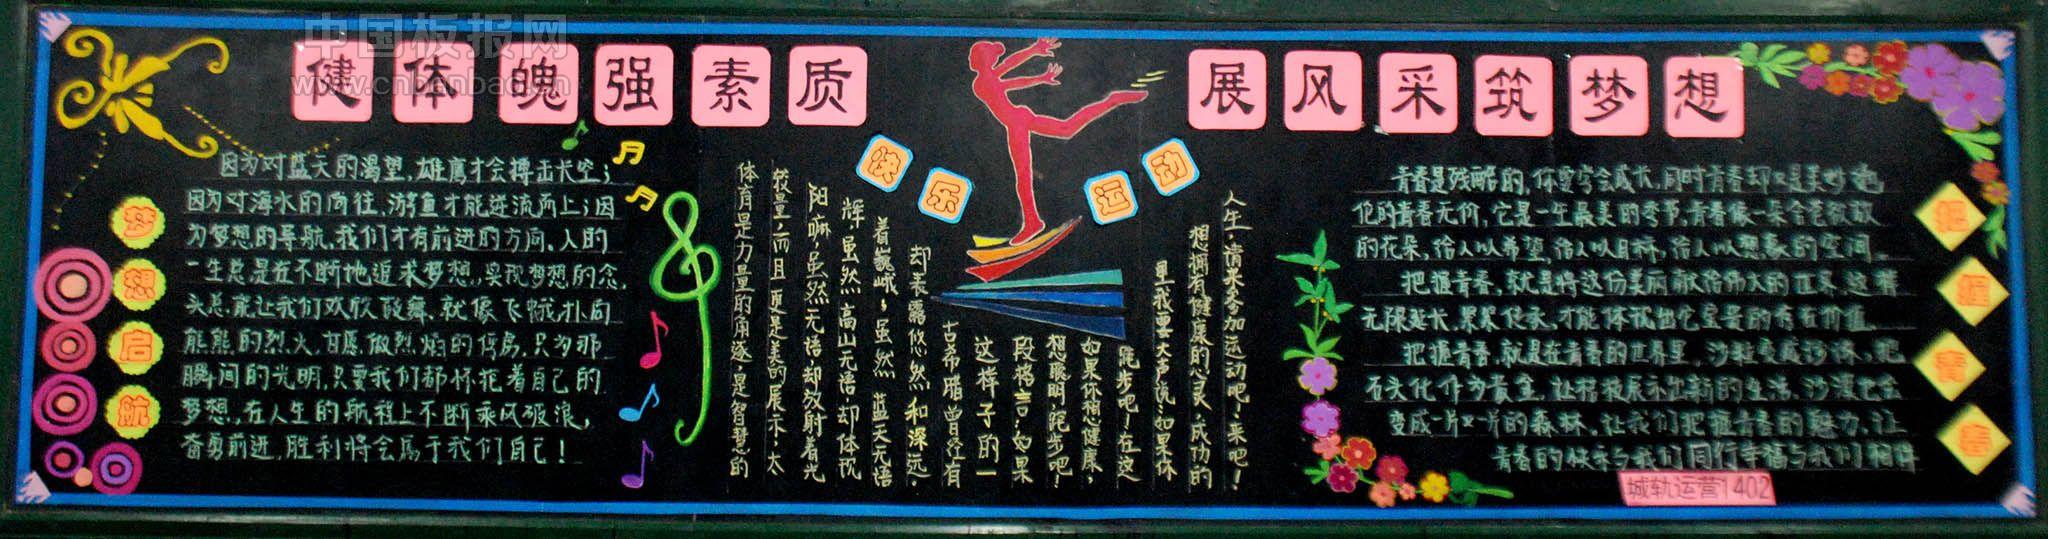 中国板报网
www.cnbanbao.cn
健体魄强素质
展风采筑梦想
快乐运动
梦想启航
因为对蓝天的渴望,雄鹰才会搏击长空;
因为对海水的向往,游鱼才能逆流而上;因
为梦想的导航,我们才有前进的方向。人的
一生总是在不断地追求梦想,实现梦想的念
头总能让我们欢欣鼓舞,就像飞蛾扑向
熊熊的烈火,甘愿做烈焰的俘虏,只为那
瞬间的光明,只要我们都怀抱着自己的
梦想,在人生的航程上不断乘风破浪,
奋勇前进,胜利将会属于我们自己!
人生,请来参加运动吧!来吧!
想拥有健康的心灵,成功的
里我要大声说:如果你
跑步吧!在这
如果你想健康,
想聪明,跑步吧!
段格言:如果
这样子的一
古希腊曾经有
却表露悠然和深远。
着巍峨;虽然蓝天无语
辉,虽然高山无语却体现
阳嘛,虽然无语却放射着光
较量,而且更是美的展示,太
体育是力量的角逐,是智慧的
把握青春
青春是残酷的,你要学会成长,同时青春却又是美妙绝
伦的青春无价,它是一生最美的季节,青春像一朵含苞欲放
的花朵,给人以希望,给人以目标,给人以想象的空间。
把握青春,就是将这份美丽献给伟大的世界,这样
无限延长,累累传承,才能体现出它宝贵的存在价值。
把握青春,就是在青春的世界里,沙粒变成珍珠,
石头化作为黄金,让枯枝展示出新的生活,沙漠也会
变成一片又一片的森林,让我们把握青春的魅力,让
青春的快乐与我们同行幸福与我们相伴
城轨运营1402